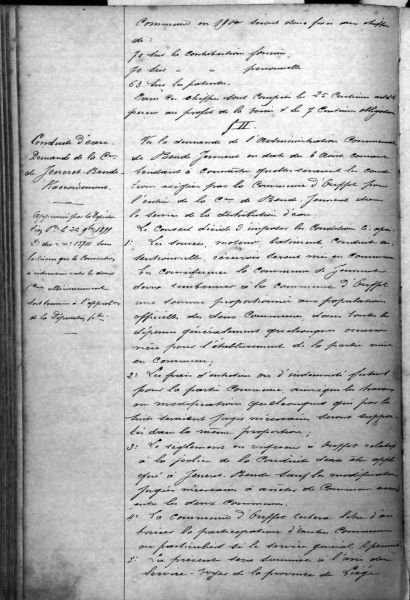 Commune en 1900 seront donc fixés aux chiffres
de :
70 sur la contribution foncière
70 sur " " personnelle
63 sur les patentes.
Dans ce chiffre sont compris les 25 Centimes
perçus au profit de la voirie, & les 7 Centimes obligatoires
§ II.
Conduite d'eau.
Demande de la Cne
de Jeneret-Bende
Raccordement.
Approuvé par la Députation
le 22 9bre 1899
sous
la réserve que la Convention
à intervenir entre les deux
Cnes ultérieurement
soit soumise à l'approbation
de la Députation pte.
Vu la demande de l'Administration Communale
de Bende Jeneret en date du 6 Août courant
tendant à connaître quelles seraient les condi-
tions exigées par la Commune d'Ouffet pour
l'entrée de la Cne de Bende Jeneret dans
le service de la distribution d'eau.
Le Conseil décide d'imposer les Conditions ci-après
1° La source, moteur, bâtiment, conduite
réservoir seront mis en commun
En conséquence la Commune de Jeneret
devra rembourser à la commune d'Ouffet
une somme proportionnée aux populations
officielles des deux Communes, dans toutes les
dépenses généralement quelconques occasion-
nées pour l'établissement de la partie mise
en Commun ;
2° Les frais d'entretien ou d'indemnité futurs
pour la partie Commune, ainsi que les travaux
ou modifications quelconques qui par la
suite seraient jugés nécessaires seront suppor-
tés dans la même proportion ;
3° Le règlement en vigueur à Ouffet relatif
à la police de la Conduite sera appli-
qué à Jeneret Bende sauf les modifications
jugées nécessaires à arrêter de Commun accord
entre les deux Communes.
4° La Commune d'Ouffet restera libre d'au-
toriser la participation d'autres Communes
ou particuliers si le service général le permet
5° La présente sera soumise à l'avis du
Service-Voyer de la province de Liége